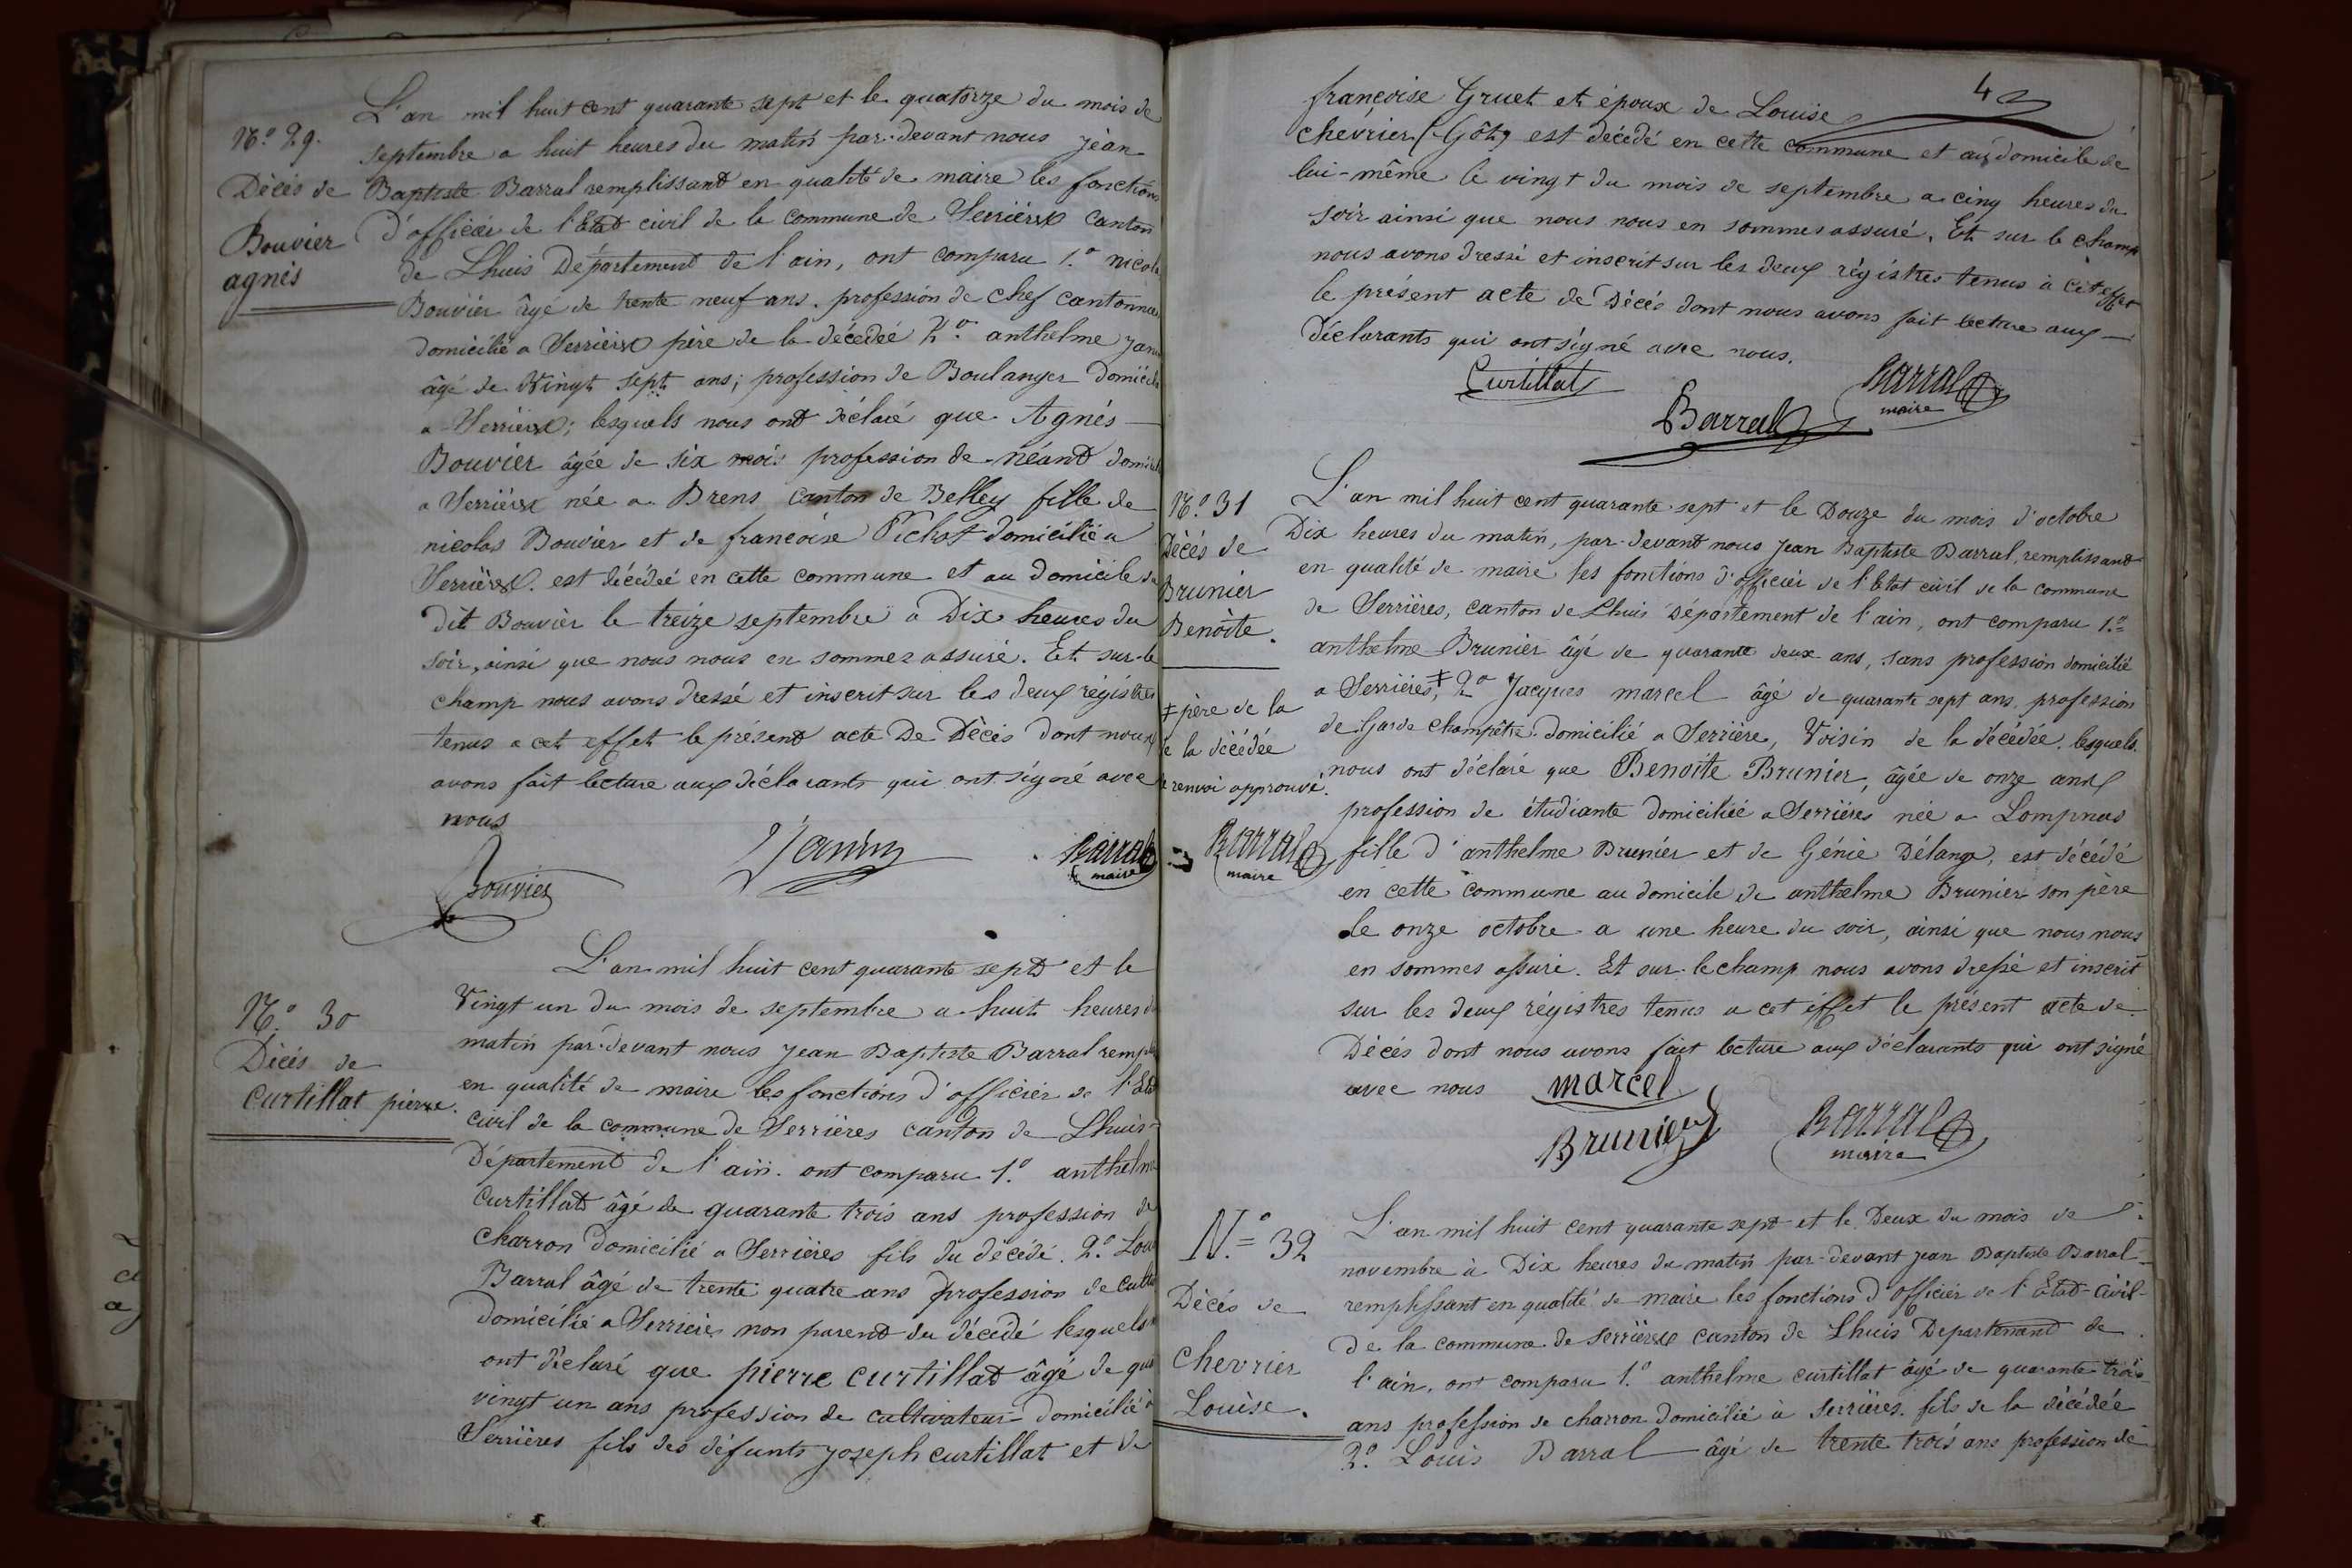 N.º 29.
Décés de
Bouvier
agnés
L'an mil huit cent quarante sept et le quatorze du mois de
septembre a huit heures du matin par-devant nous jean
Baptiste Barral remplissant en qualité de maire les fonctions
d'officier de l'Etat civil de la commune de Serrières canton
de Lhuis Département de l'ain, ont comparu 1.º nicolas
Bouvier âgé de trente neuf ans. profession de chef cantonnier
domicilié a Serrières père de la décédée 2.º anthelme
âgé de Vingt sept ans; profession de Boulanger domicilié
a Serrières; lesquels nous ont déclaré que Agnés
Bouvier âgée de six mois profession de néant domicil
a Serrières née a Brens canton de Belley fille de
nicolas Bouvier et de francoise Pichot domicilié a
Serrières. est décédée en cette commune et au domicile du
dit Bouvier le treize septembre a Dix heures du
soir, ainsi que nous nous en sommes assuré. Et sur-le
champ nous avons dressé et inscrit sur les deux régistres
tenus a cet effet le présent acte De Décés Dont nous
avons fait lecture aux déclarants qui ont signé avec
nous
Bouvier
Janin
Barral
maire
N.º 30
Décés de
Curtillat pierre.
L'an mil huit cent quarante sept et le
Vingt un du mois de septembre a huit heures du
matin par-devant nous jean Baptiste Barral rempli
en qualité de maire les fonctions d'officier de l'Etat
civil de la commune de Serrières canton de Lhuis
Département de l'ain. ont comparu 1.º anthelme
Curtillat âgé de quarante trois ans profession de
charron domicilié a Serrières fils du décédé. 2.º Louis
Barral âgé de trente quatre ans profession de culti
domicilié a Serrières non parent du décédé lesquels
ont déclaré que pierre curtillat âgé de qua
vingt un ans profession de cultivateur domicilié à
Serrières fils des défunts joseph curtillat et de
françoise Gruet et époux de Louise
chevrier (Gôt) est décédé en cette commune et au domicile de
lui-même le vingt du mois de septembre a cinq heures du
soir ainsi que nous nous en sommes assuré. Et sur le champ
nous avons dressé et inscrit sur les deux régistres tenus à cet effet
le présent acte de Décés dont nous avons fait lecture aux
déclarants qui ont signé avec nous.
Curtillat
Barral
Barral
maire
N.º 31
Décés de
Brunier
Benoite.
L'an mil huit cent quarante sept et le Douze du mois d'octobre
Dix heures du matin, par-devant nous jean Baptiste Barral, remplissant
en qualité de maire les fonctions d'officier de l'Etat civil de la commune
de Serrières, canton de Lhuis département de l'ain, ont comparu 1.º
anthelme Brunier âgé de quarante deux ans, sans profession domicilié
a Serrières ‡, 2º Jacques marcel âgé de quarante sept ans, profession
de Garde champêtre domicilié a Serrière, Voisin de la décédée. lesquels
nous ont déclaré que Benoite Brunier, âgée de onze ans
profession de étudiante domiciliée a Serrières née a Lompnas
fille d'anthelme Brunier et de Génie Délang, est décédé
en cette commune au domicile de anthelme Brunier son père
le onze octobre a une heure du soir, ainsi que nous nous
en sommes assuré. Et sur-le champ nous avons dressé et inscrit
sur les deux régistres tenus a cet effet le présent acte de
Décés dont nous avons fait lecture aux déclarants qui ont signé
avec nous
‡ père de la
de la décédée
renvoi approuvé.
Barral
maire
marcel
Brunier
Barral
maire
N.º 32
Décés de
chevrier
Louise.
L'an mil huit cent quarante sept et le Deux du mois de
novembre à Dix heures du matin par-devant jean Baptiste Barral
remplissant en qualité de maire les fonctions d'officier de l'Etat-civil
de la commune de Serrières canton de Lhuis Departemant de
l'ain, ont comparu 1.º anthelme curtillat âgé de quarante trois
ans profession de charron domicilié à Serrières. fils de la décédée
2.º Louis Barral âgé de trente trois ans profession de